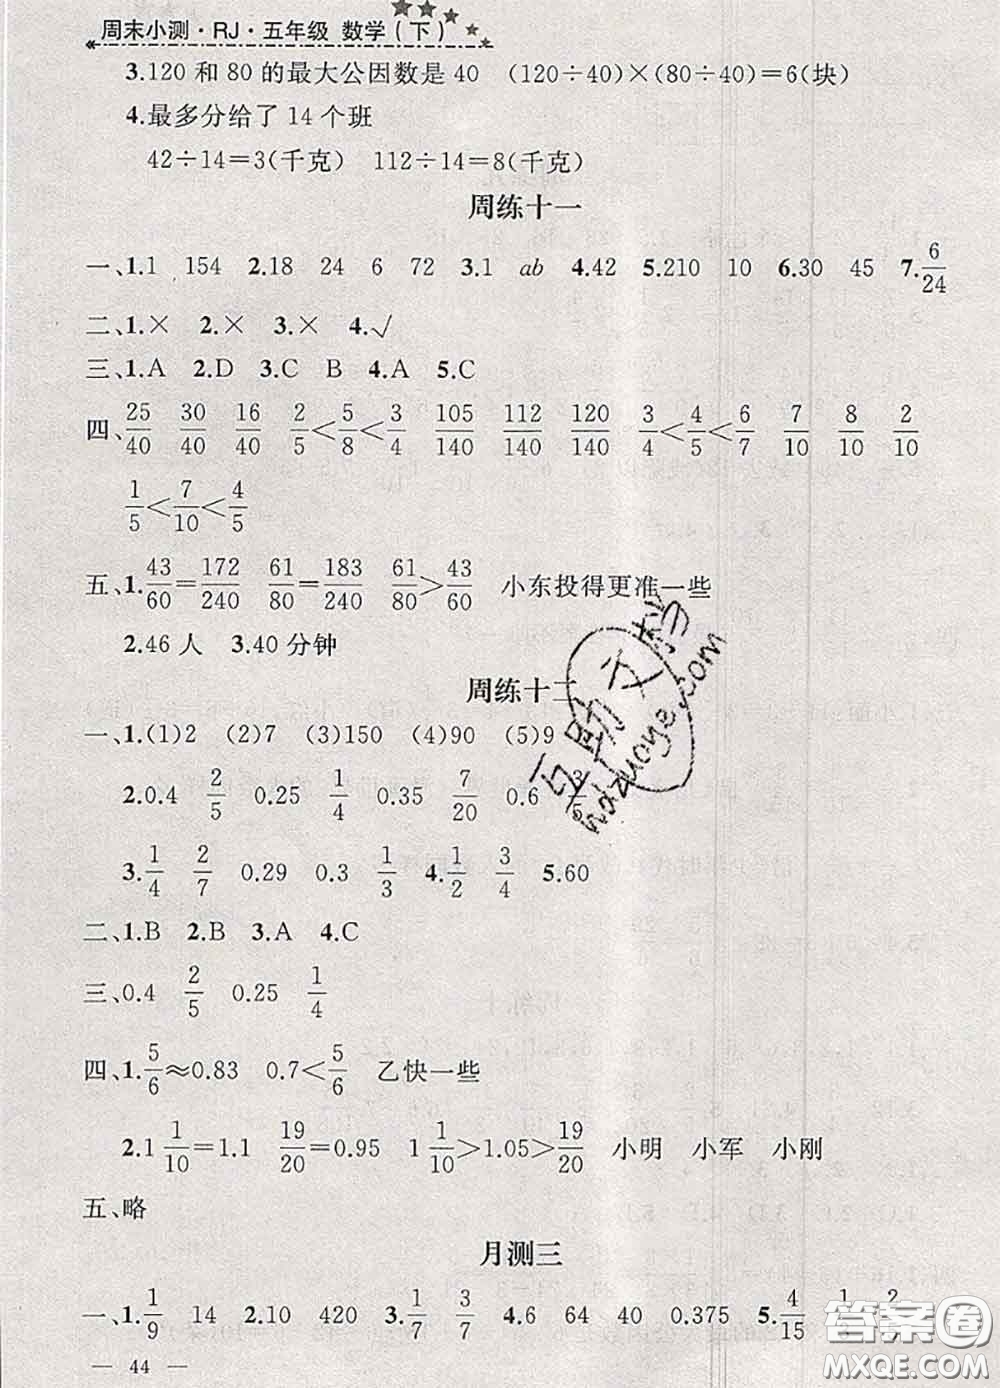 周末小测·RJ·五年级 数学(下)
3.120 和 80 的最大公因数是 40 (120÷40)×(80÷40)=6(块)
4.最多分给了 14 个班
42÷14=3(千克) 112÷14=8(千克)
周练十一
一、1.1 154 2.18 24 6 72 3.1 ab 4.42 5.210 10 6.30 45 7.6/24
二、1.× 2.× 3.× 4.√
三、1.A 2.D 3.C B 4.A 5.C
四、25/40 30/40 16/40 2/5<5/8<3/4 105/140 112/140 120/140 3/4<4/5<6/7 7/10 8/10 2/10
1/5<7/10<4/5
五、1.43/60=172/240 61/80=183/240 61/80>43/60 小东投得更准一些
2.46 人 3.40 分钟
周练十二
一、1.(1)2 (2)7 (3)150 (4)90 (5)9
2.0.4 2/5 0.25 1/4 0.35 7/20 0.6 3/5
3.1/4 2/7 0.29 0.3 1/3 4.1/2 3/4 5.60
二、1.B 2.B 3.A 4.C
三、0.4 2/5 0.25 1/4
四、1.5/6≈0.83 0.7<5/6 乙快一些
2.1 1/10=1.1 19/20=0.95 1 1/10>1.05>19/20 小明 小军 小刚
五、略
月测三
一、1.1/9 14 2.10 420 3.1/7 3/7 4.6 64 40 0.375 5.4/15
— 44 —
互助文档
hdzuoye.com
答案圈
MXQE.COM